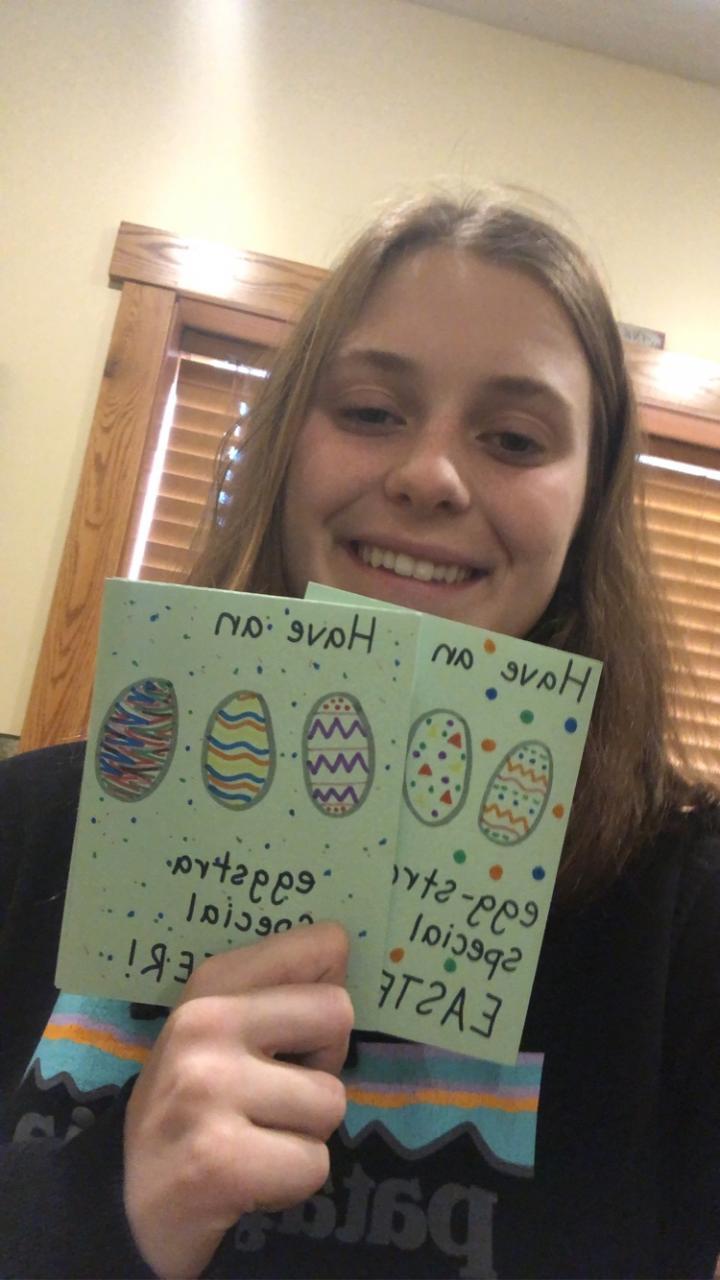 Have an
eggstra
special
ER!
Have an
egg-stra
special
EAST
pata